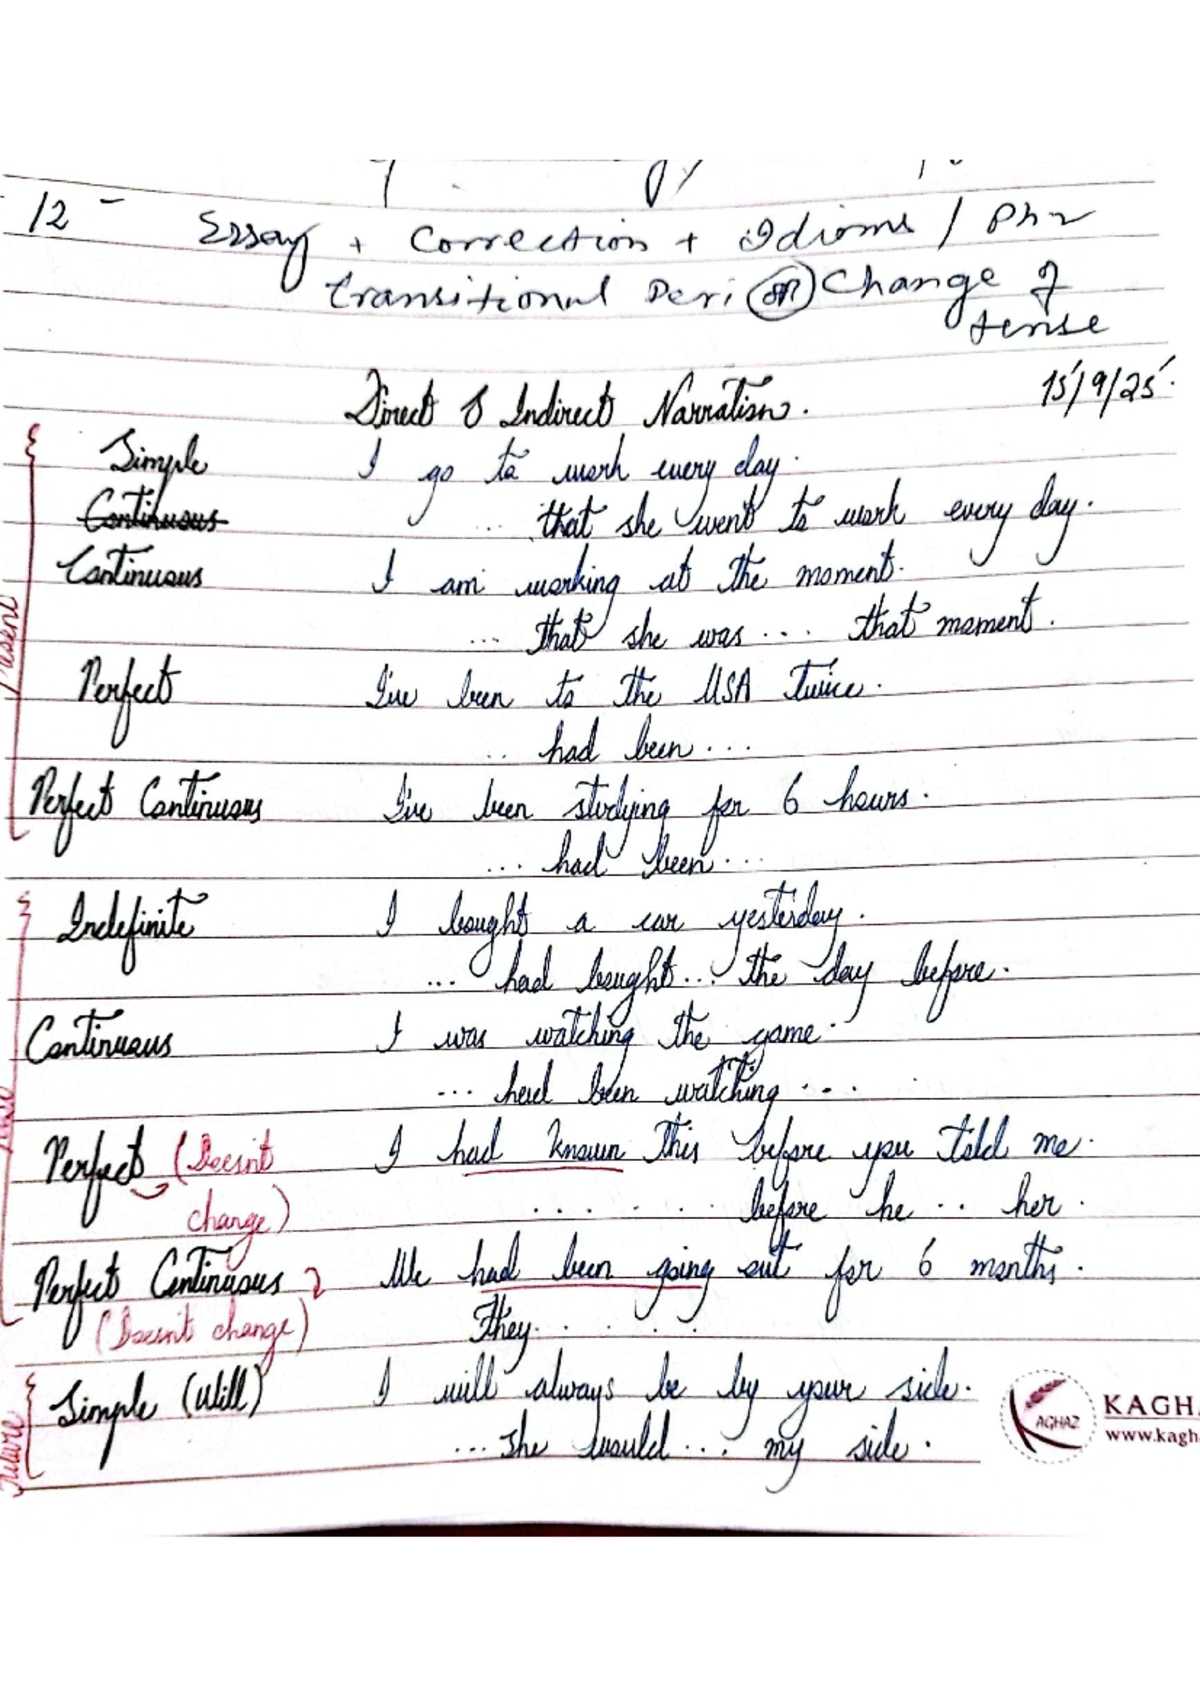 12 - Essay + Correction + Idioms / Phr
transitional Peri OR Change of
tense
Direct & Indirect Narration. 15/9/25
Simple I go to work every day.
Continuous ... that she went to work every day.
Continuous I am working at the moment.
... that she was ... that moment.
Perfect I've been to the USA twice.
... had been ...
Perfect Continuous I've been studying for 6 hours.
... had been ...
Present
Indefinite I bought a car yesterday.
... had bought ... the day before.
Continuous I was watching the game.
... had been watching ...
Perfect (Doesn't I had known this before you told me.
change) ...... before he ... her.
Perfect Continuous We had been going out for 6 months.
(Doesn't change) They .....
Simple (Will) I will always be by your side.
... she would ... my side.
Future
AGHAZ
KAGHA
www.kagh